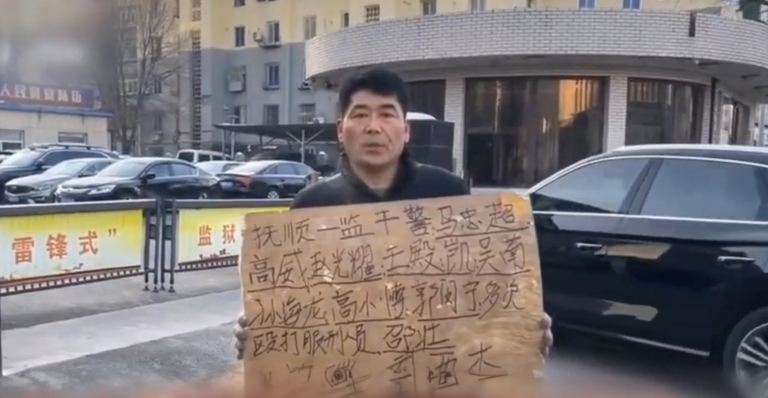 人民警察队伍
雷锋式"
监狱
抚顺一监干警马忠超、
高威赵光耀、王殿凯吴南
孙海龙、高小博、郭闵宁、多次
殴打服刑人员、邵壮